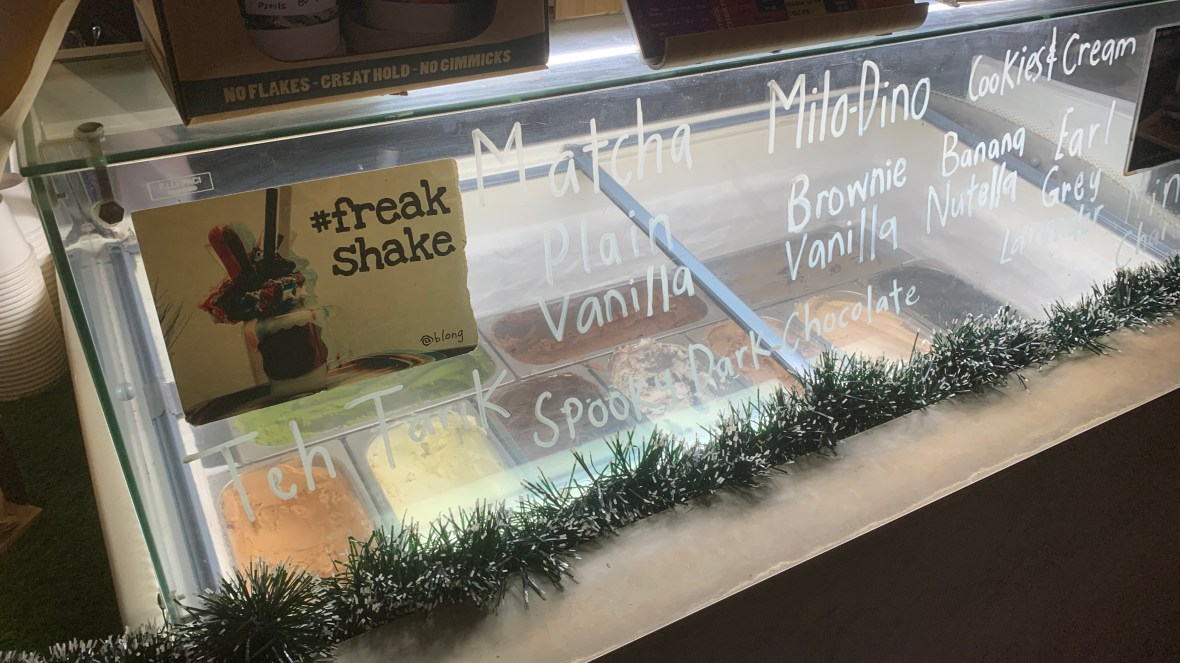 NO FLAKES - GREAT HOLD - NO GIMMICKS
#freak
shake
@blong
Matcha
Plain
Vanilla
Teh Tarik
Milo-Dino
Brownie
Vanilla
Spooky Dark Chocolate
Cookies & Cream
Banana
Nutella
Earl
Grey